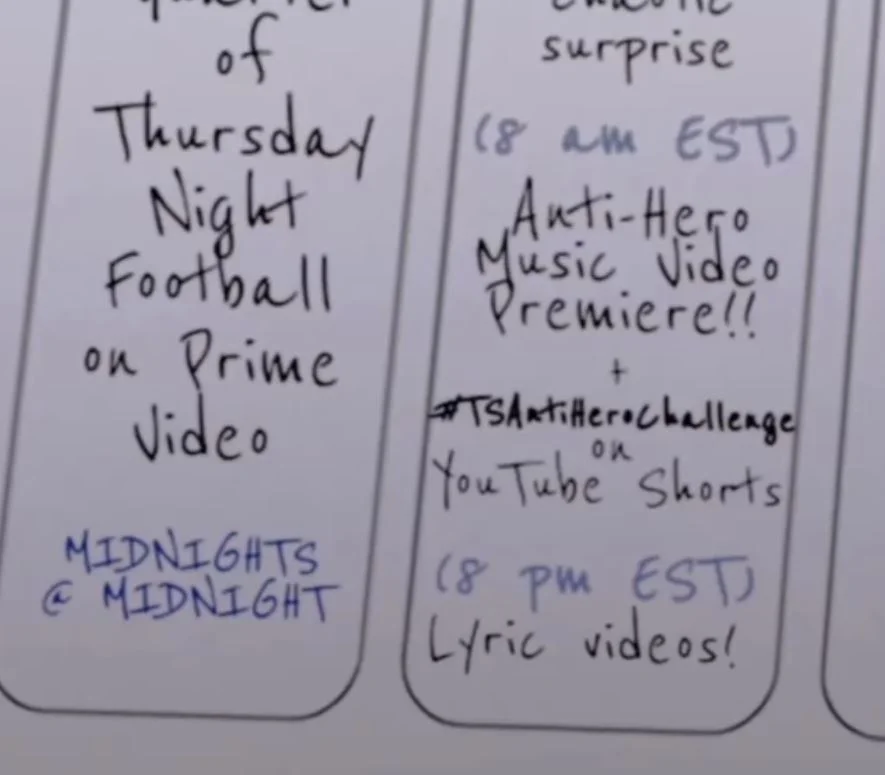 of
Thursday
Night
Football
on Prime
Video
MIDNIGHTS
@ MIDNIGHT
surprise
(8 am EST)
Anti-Hero
Music Video
Premiere!!
+
#TSAntiHeroChallenge
on
YouTube Shorts
(8 pm EST)
Lyric videos!